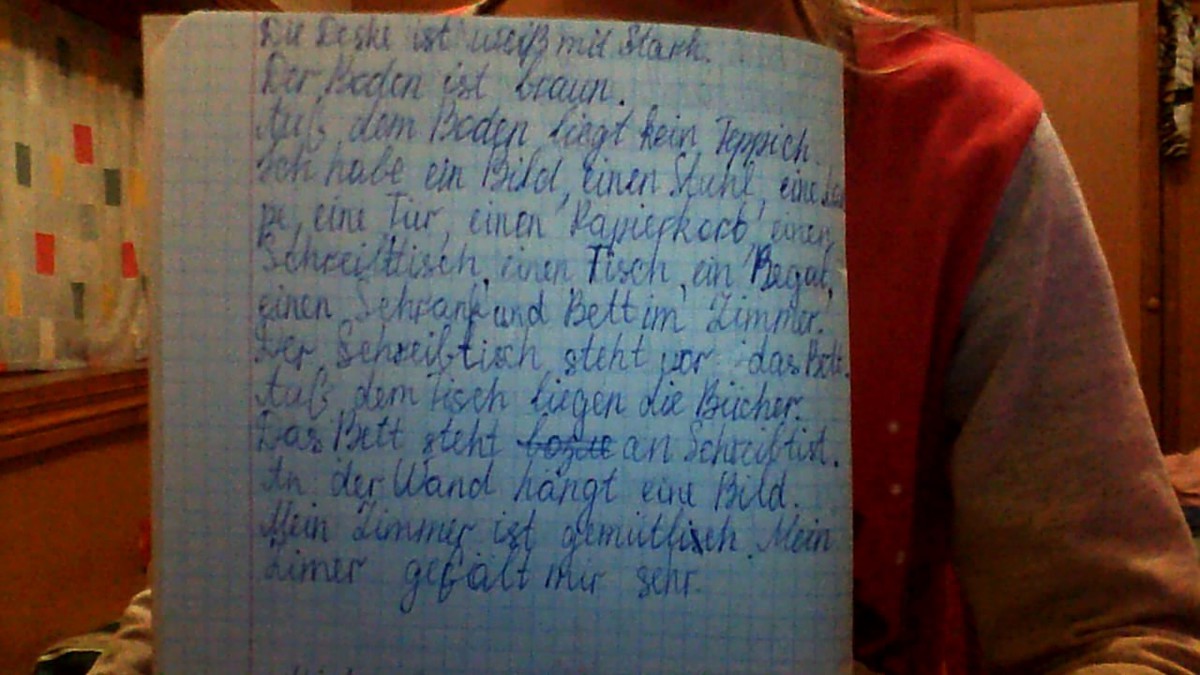 Die Deske ist weiß mit Stark.
Der Boden ist braun.
Auß dem Boden liegt kein Teppich.
Ich habe ein Bild, einen Stuhl, eine
pe, eine Tür, einen Papierkorb, einen
Schreibtisch, einen Tisch, ein Regal,
einen Schrank und Bett im Zimmer.
Der Schreibtisch steht vor das Bett.
Auß dem Tisch liegen die Bücher.
Das Bett steht an Schreibtist.
An der Wand hängt eine Bild.
Mein Zimmer ist gemütlisch. Mein
Zimer gefält mir sehr.